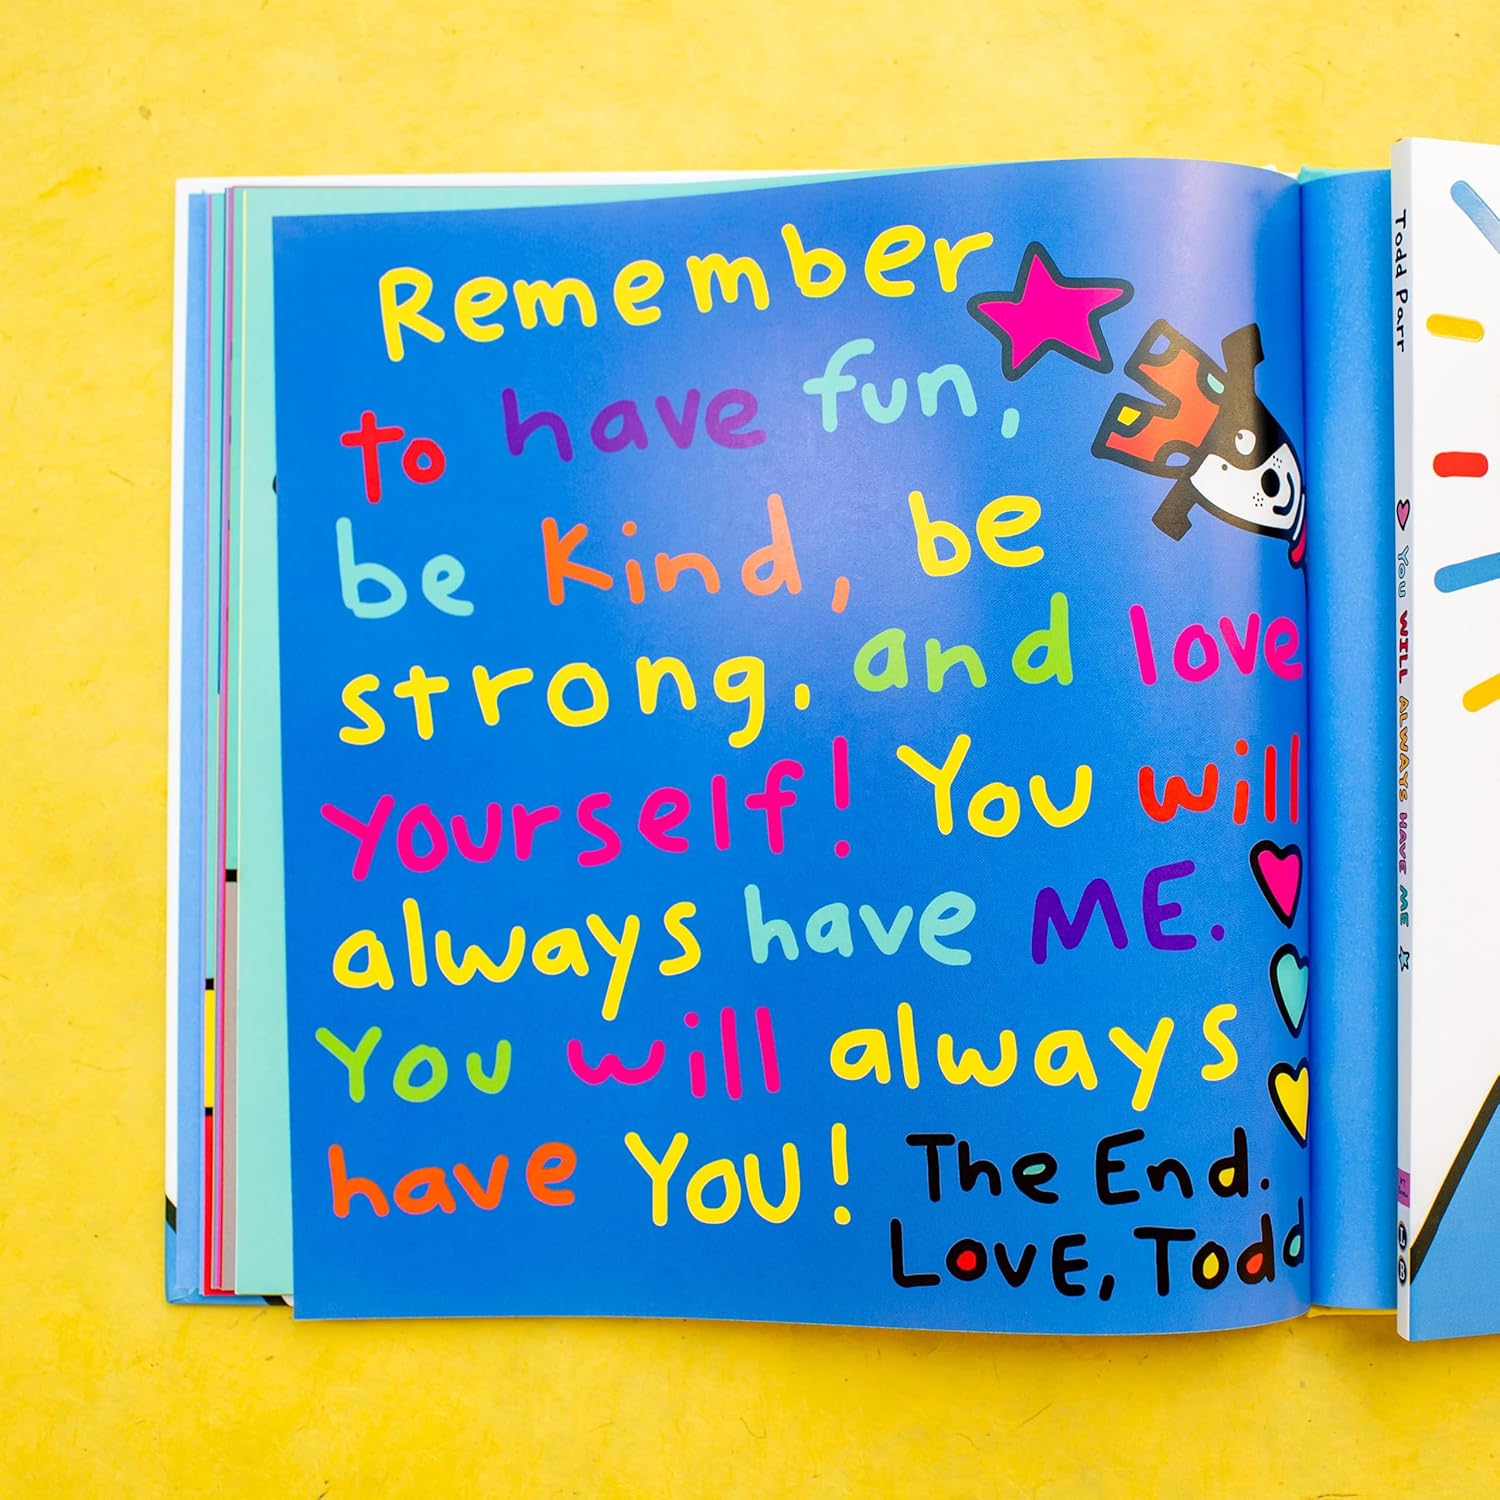 Remember
to have fun,
be kind, be
strong, and love
yourself! You will
always have ME.
You will always
have You!
The End.
Love, Todd
Todd Parr
You WILL ALWAYS HAVE ME
L B